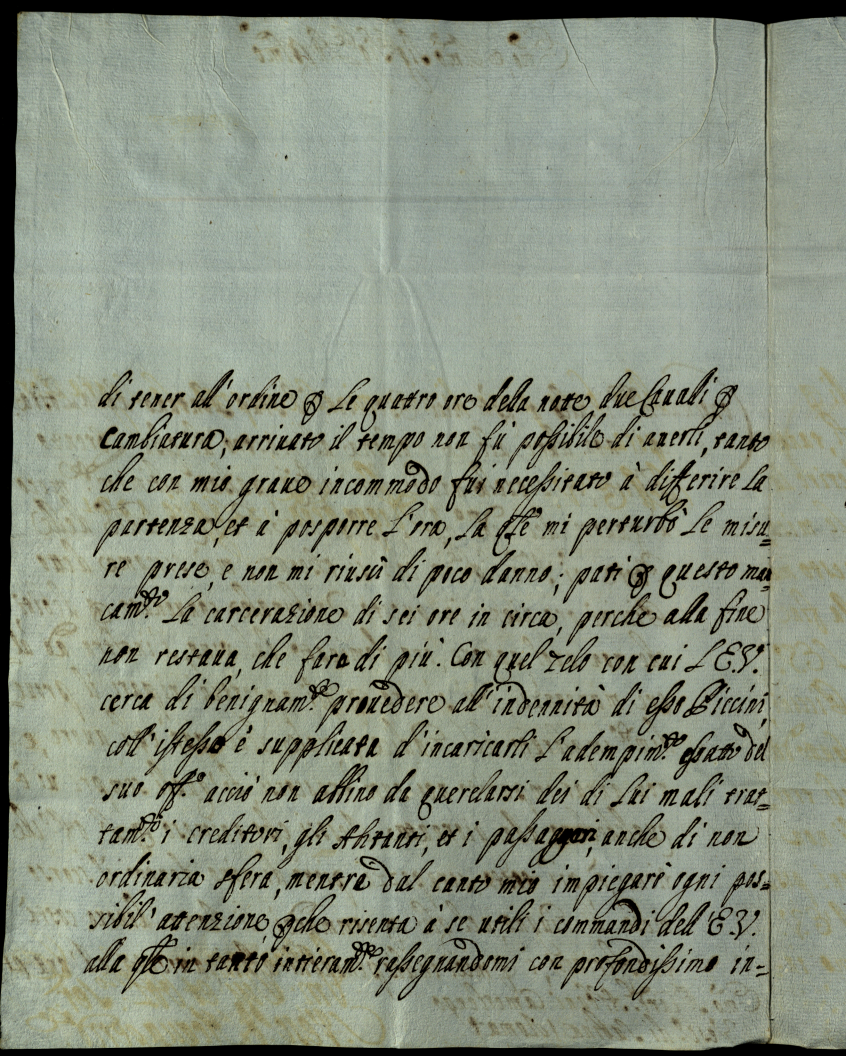 di tener all'ordine p Le quattro ore della notte due Cavalli p
Cambiatura; arrivato il tempo non fù possibile di averli, tanto
che con mio grave incommodo fui necessitato à differire La
partenza, et à posporre L'ora, La qle mi perturbò Le misu=
re prese, e non mi riuscì di poco danno; patì p questo man=
cam.to La carcerazione di sei ore in circa, perche alla fine
non restava, che fare di più. Con quel zelo con cui L'E.V.
cerca di benignam.te provedere all'indennità di esso Piccini,
coll'istesso è supplicata d'incaricarli L'adempim.to esatto del
suo off.o acciò non abbino da querelarsi dei di Lui mali trat=
tam.ti i creditori, gli abitanti, et i passaggieri, anche di non
ordinaria sfera, mentre dal canto mio impiegarò ogni pos=
sibil'attenzione pche risenta à se utili i commandi dell'E.V.
alla qle in tanto intieram.te rassegnandomi con profondissimo in=